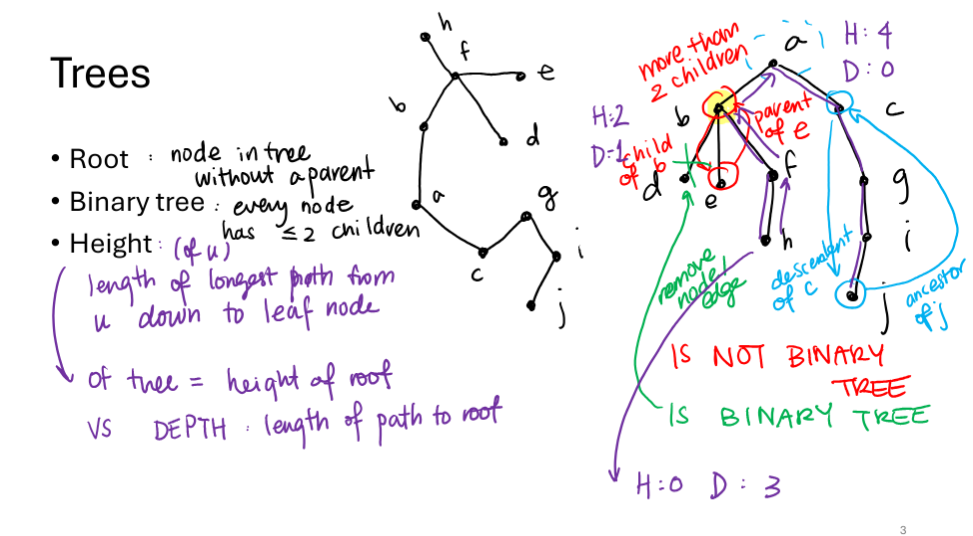 Trees
• Root : node in tree
without a parent
• Binary tree : every node
has ≤2 children
• Height : (of u)
length of longest path from
u down to leaf node
of tree = height of root
VS DEPTH : length of path to root
h
f
e
b
d
a
g
c
i
j
more than
2 children
a
H: 4
D: 0
H:2
D=1
b
parent
of e
c
child
of b
d
e
f
g
h
i
remove
node/
edge
descendent
of c
j
ancestor
of j
IS NOT BINARY
TREE
IS BINARY TREE
H:0 D: 3
3